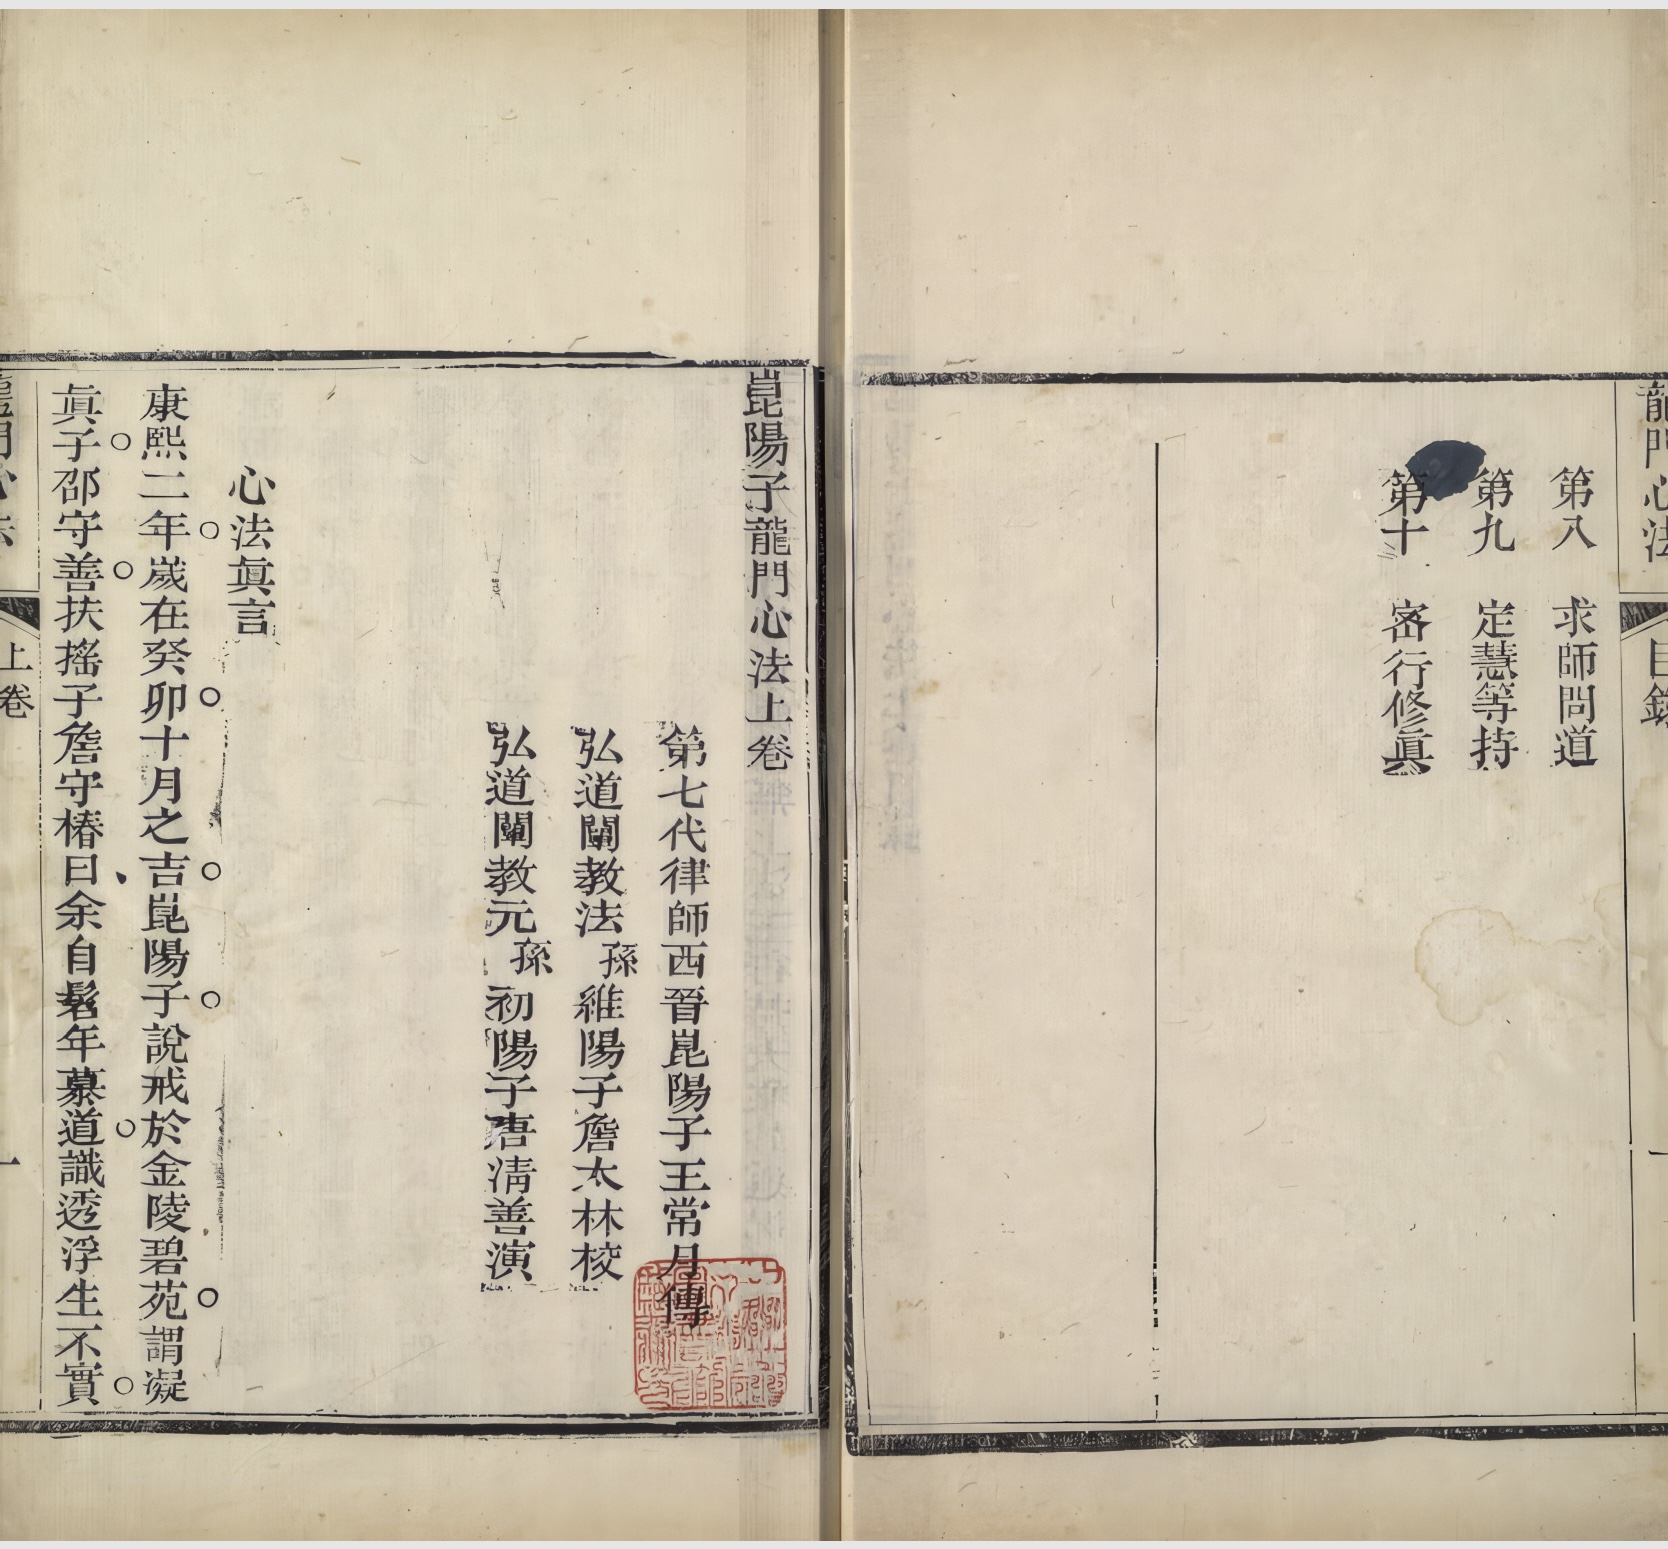 龍門心法
目錄
一
第八　求師問道
第九　定慧等持
第十　密行修眞
崑陽子龍門心法上卷
第七代律師西晉崑陽子王常月傳
弘道闡教法孫維陽子詹太林校
弘道闡教元孫初陽子唐清善演
心法眞言
康熙二年歲在癸卯十月之吉崑陽子說戒於金陵碧苑謂凝
眞子邵守善扶搖子詹守椿曰余自髫年慕道識透浮生不實
龍門心法
上卷
一